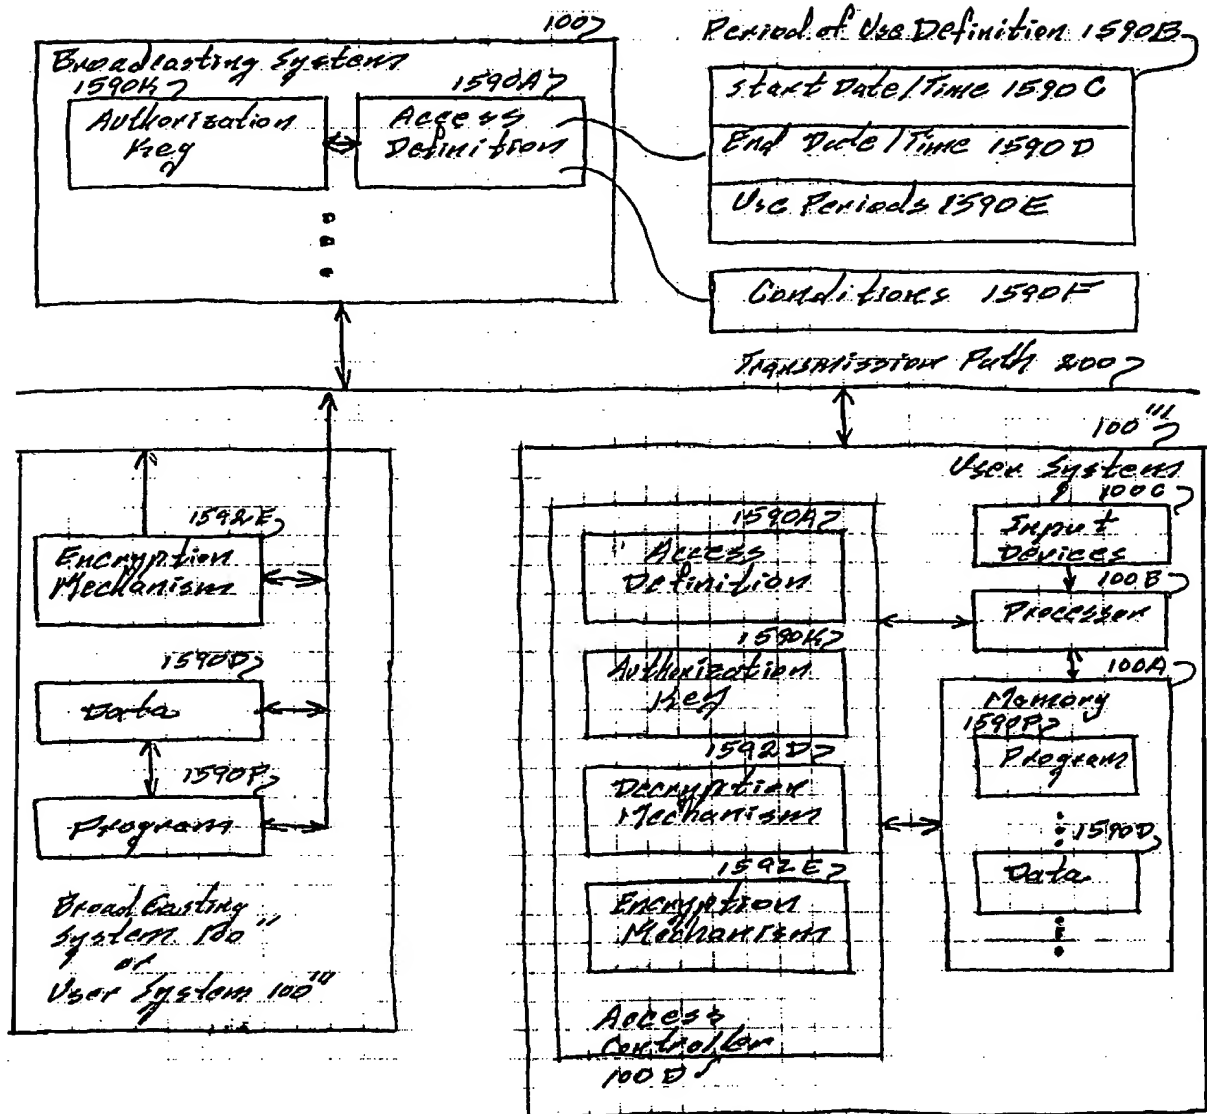 100
Broadcasting System
1590K
Authorization
Key
1590A
Access
Definition
Period of Use Definition 1590B
Start Date/Time 1590C
End Date/Time 1590D
Use Periods 1590E
Conditions 1590F
Transmission Path 200
1592E
Encryption
Mechanism
1590D
Data
1590P
Program
Broadcasting
System 100"
or
User System 100'''
100'''
User System
1590A
Access
Definition
1590K
Authorization
Key
1592D
Decryption
Mechanism
1592E
Encryption
Mechanism
Access
Controller
100D
100C
Input
Devices
100B
Processor
100A
Memory
1590P
Program
1590D
Data